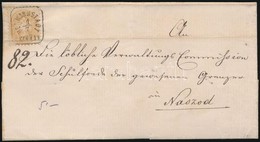 An
82. Die löbliche Verwaltungs Commission
der Schulfonde der gewesenen Grenzer
in
Naszod
5/-